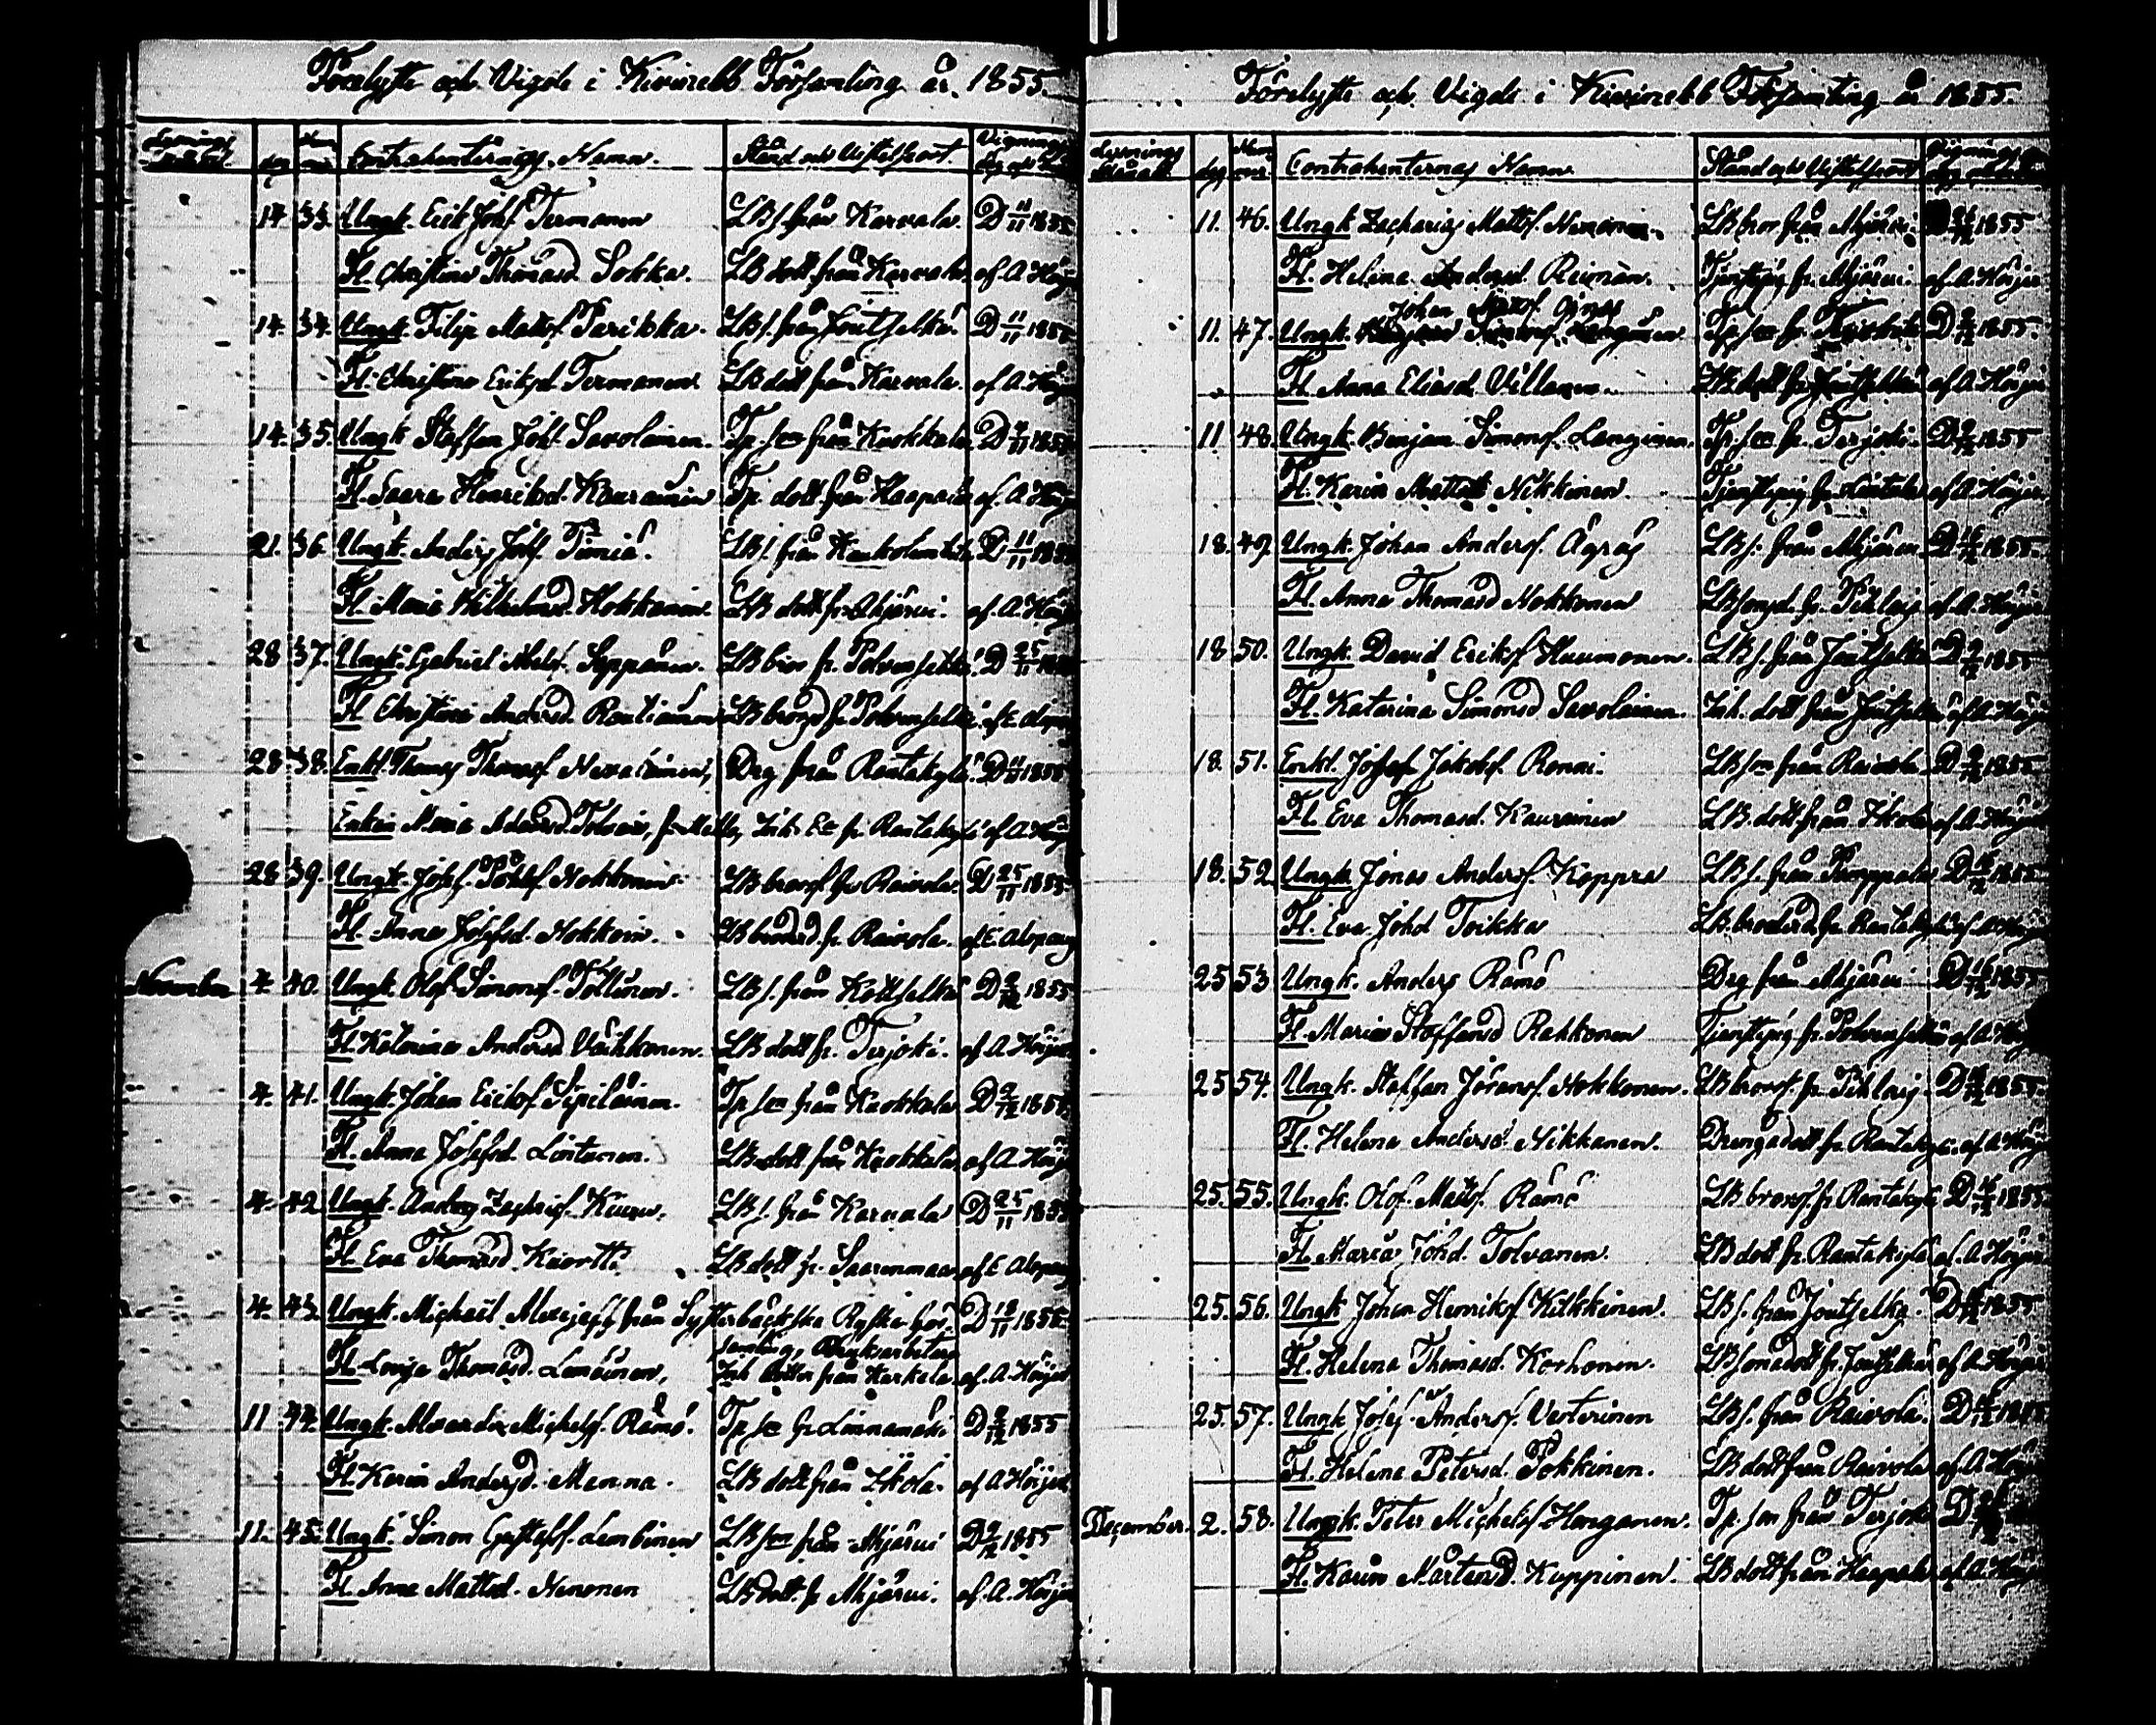 Förelyste och Vigde i Kivinebb Församling år 1855.
Lysnings dag Num mer Contrahenternas Namn. Stånd och Vistelseort. Vignings dag och
14. 33. Ungk. Erik Johs Termonen LBs. från Karvala. D 11/11 1855
Fl. Christina Thomasd Sokka. LB dott från Karvala. af A. Höijer
14. 34. Ungk. Filip Matts. Parikka. LBs. från Joutselkä. D 11/11 1855
Fl. Christina Eriksd Termonen LB dott från Karvala. af A. Höijer
14. 35. Ungk Staffan Johs. Savolainen. Tp. son från Kuokkala D 1855
Fl. Saara Henriksd. Kauranen Tp. dott. från Haapala af. A. Höijer
21. 36. Ungk. Anders Johs. LBs. från D 11/11 1855
Fl. Maria Wilhelmsd. Hokkanen LB dott. fr. Ahjärvi. af. A. Höijer
28 37. Ungk. Gabriel Seppänen. LB bror fr. Polvenselkä. D 25/11 1855
Fl Christina Andersd. Rautiainen LB brorsd fr Polvenselkä. af E. Alopæus
28 38. Enkl Thomas Thomas Drg från Rantakylä. D 11/11 1855
Enkan Maria Adamsd. Inh. fr. Rantakylä af. A. Höijer
28 39. Ungk. Josef. Nokkonen LB brors. fr. Raivola. D 25/11 1855
Fl. Anna Josefsd. LB brorsd. fr. Raivola. af E Alopæus
November 4. 40. Ungk. Olof Simons. Pöllänen. LBs. från Kotselkä D 2/12 1855
Fl. Katarina Andersd. Vaikkonen. LB dott fr. Terjoki. af. A. Höijer
4. 41. Ungk Johan Eriks. Pipilainen. Tp. son från Kuokkala D 2/12 1855
Fl. Anna Josefsd. Lintunen. LB. dott från Kuokkala af A. Höijer
4. 42 Ungk. Anders Zachris. Kiuru. LBs. från Karvala D 25/11 1855
Fl. Eva Thomasd. Kuortti LB dott fr. Saarenmaa af E Alopæus
4. 43. Ungk. Michaël Alexejeff från Systerbäckska Ryska för- D 18/11 1855.
samling, Bruksarbetare
Fl. Lovisa Thomasd. Inh dotter från af. A. Höijer
11 44. Ungk. Alexander Michels. Rämö. Tp. son fr. Linnamäki D 2/12 1855
Fl. Karin Andersd. Manna. LB dott från Ikola. af A Höijer
11. 45. Ungk. Simon Gustafs. Lembinen LB son från Ahjärvi D 9/12 1855
Fl. Anna Mattsd. Nenonen LB dott. fr Ahjärvi. af. A. Höijer
Förelyste och Vigde i Kivinebb Församling år 1855.
Lysnings Månad dag Num mer Contrahenternas Namn Stånd och Vistelseort Vignings dag och
11. 46. Ungk Zacharias Matts. Nenonen. LB bror från Ahjärvi. 26/12 1855
Fl. Helena Andersd. Reiman. Tjenstepig fr. Ahjärvi. af. A. Höijer
Johan Matts. Agras
11. 47. Ungk. Tp. son fr. D 2/12 1855.
Fl. Anna Eliasd. Villanen. LB dott fr Joutselkä af A. Höijer
11 48. Ungk. Benjam. Simons. Langinen. Tp. son fr. Terjoki. D 9/12 1855
Fl. Karin Mattsd. Nikkinen. Tjenstepig fr. Lintula af A. Höijer
18. 49. Ungk. Johan Anders. Agras LBs. från Ahjärvi. D 16/12 1855.
Fl. Anna Thomasd Nokkonen LB sonsd. fr. Pihlais af. A. Höijer
18 50. Ungk. David Eriks. Huumonen. LBs. från Joutselkä D 9/12 1855
Fl. Katarina Simonsd Savolainen. Inh. dott från Joutselkä af A. Höijer
18. 51. Enkl. Josef Jakobs. Ronni. LB son från Raivola D 9/12 1855
Fl. Eva Thomasd. Kauranen LB. dott från Ikola af. A. Höijer
18. 52. Ungk. Jonas Anders. Koppra LBs. från Pamppala D 16/12 1855
Fl. Eva Johsd Toikka LB. brorsd. fr. Rantakylä af A. Höijer
25 53 Ungk. Anders Rämö Drg från Ahjärvi D 16/12 1855
Fl. Maria Staffansd Rakkonen Tjenstepig fr. Polvenselkä af A. Höijer
25 54. Ungk. Staffan Görans. Nokkonen. LB brors. fr. Pihlais. D 16/12 1855.
Fl. Helena Andersd. Nikkanen. Drengadott fr. Rantakylä. af. A. Höijer
25. 55. Ungk. Olof. Matts. Rämö LB brors. fr. Rantakylä D 16/12 1855
Fl. Maria Johsd. Tolvanen. LB dott fr. Rantakylä af. A. Höijer
25. 56. Ungk Johan Henriks. Kilkkinen. LBs. från Joutselkä. D 16/12 1855
Fl. Helena Thomasd. Korhonen. LB sonadott. fr. Joutselkä af. A. Höijer
25. 57. Ungk Josef Anders. Vesterinen LBs. från Raivola. D 1855
Fl. Helena Petersd. Pokkinen. LB dott från Raivola af A. Höijer
December. 2. 58. Ungk. Peter Michels. Honganen. Tp. son från Terjoki D
Fl. Karin Mårtensd. Kuppinen. LB dott från Haapala af. A. Höijer